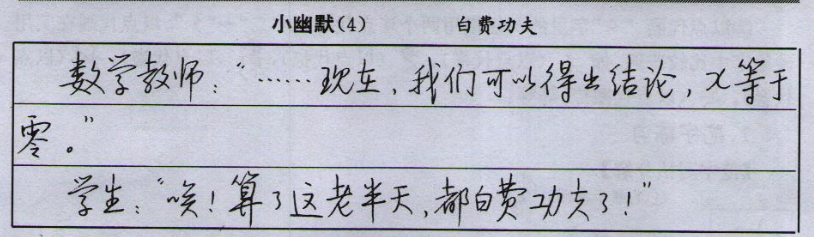 小幽默(4) 白费功夫
数学教师:“……现在,我们可以得出结论,x等于
零。”
学生:“唉!算了这老半天,都白费功夫了!”